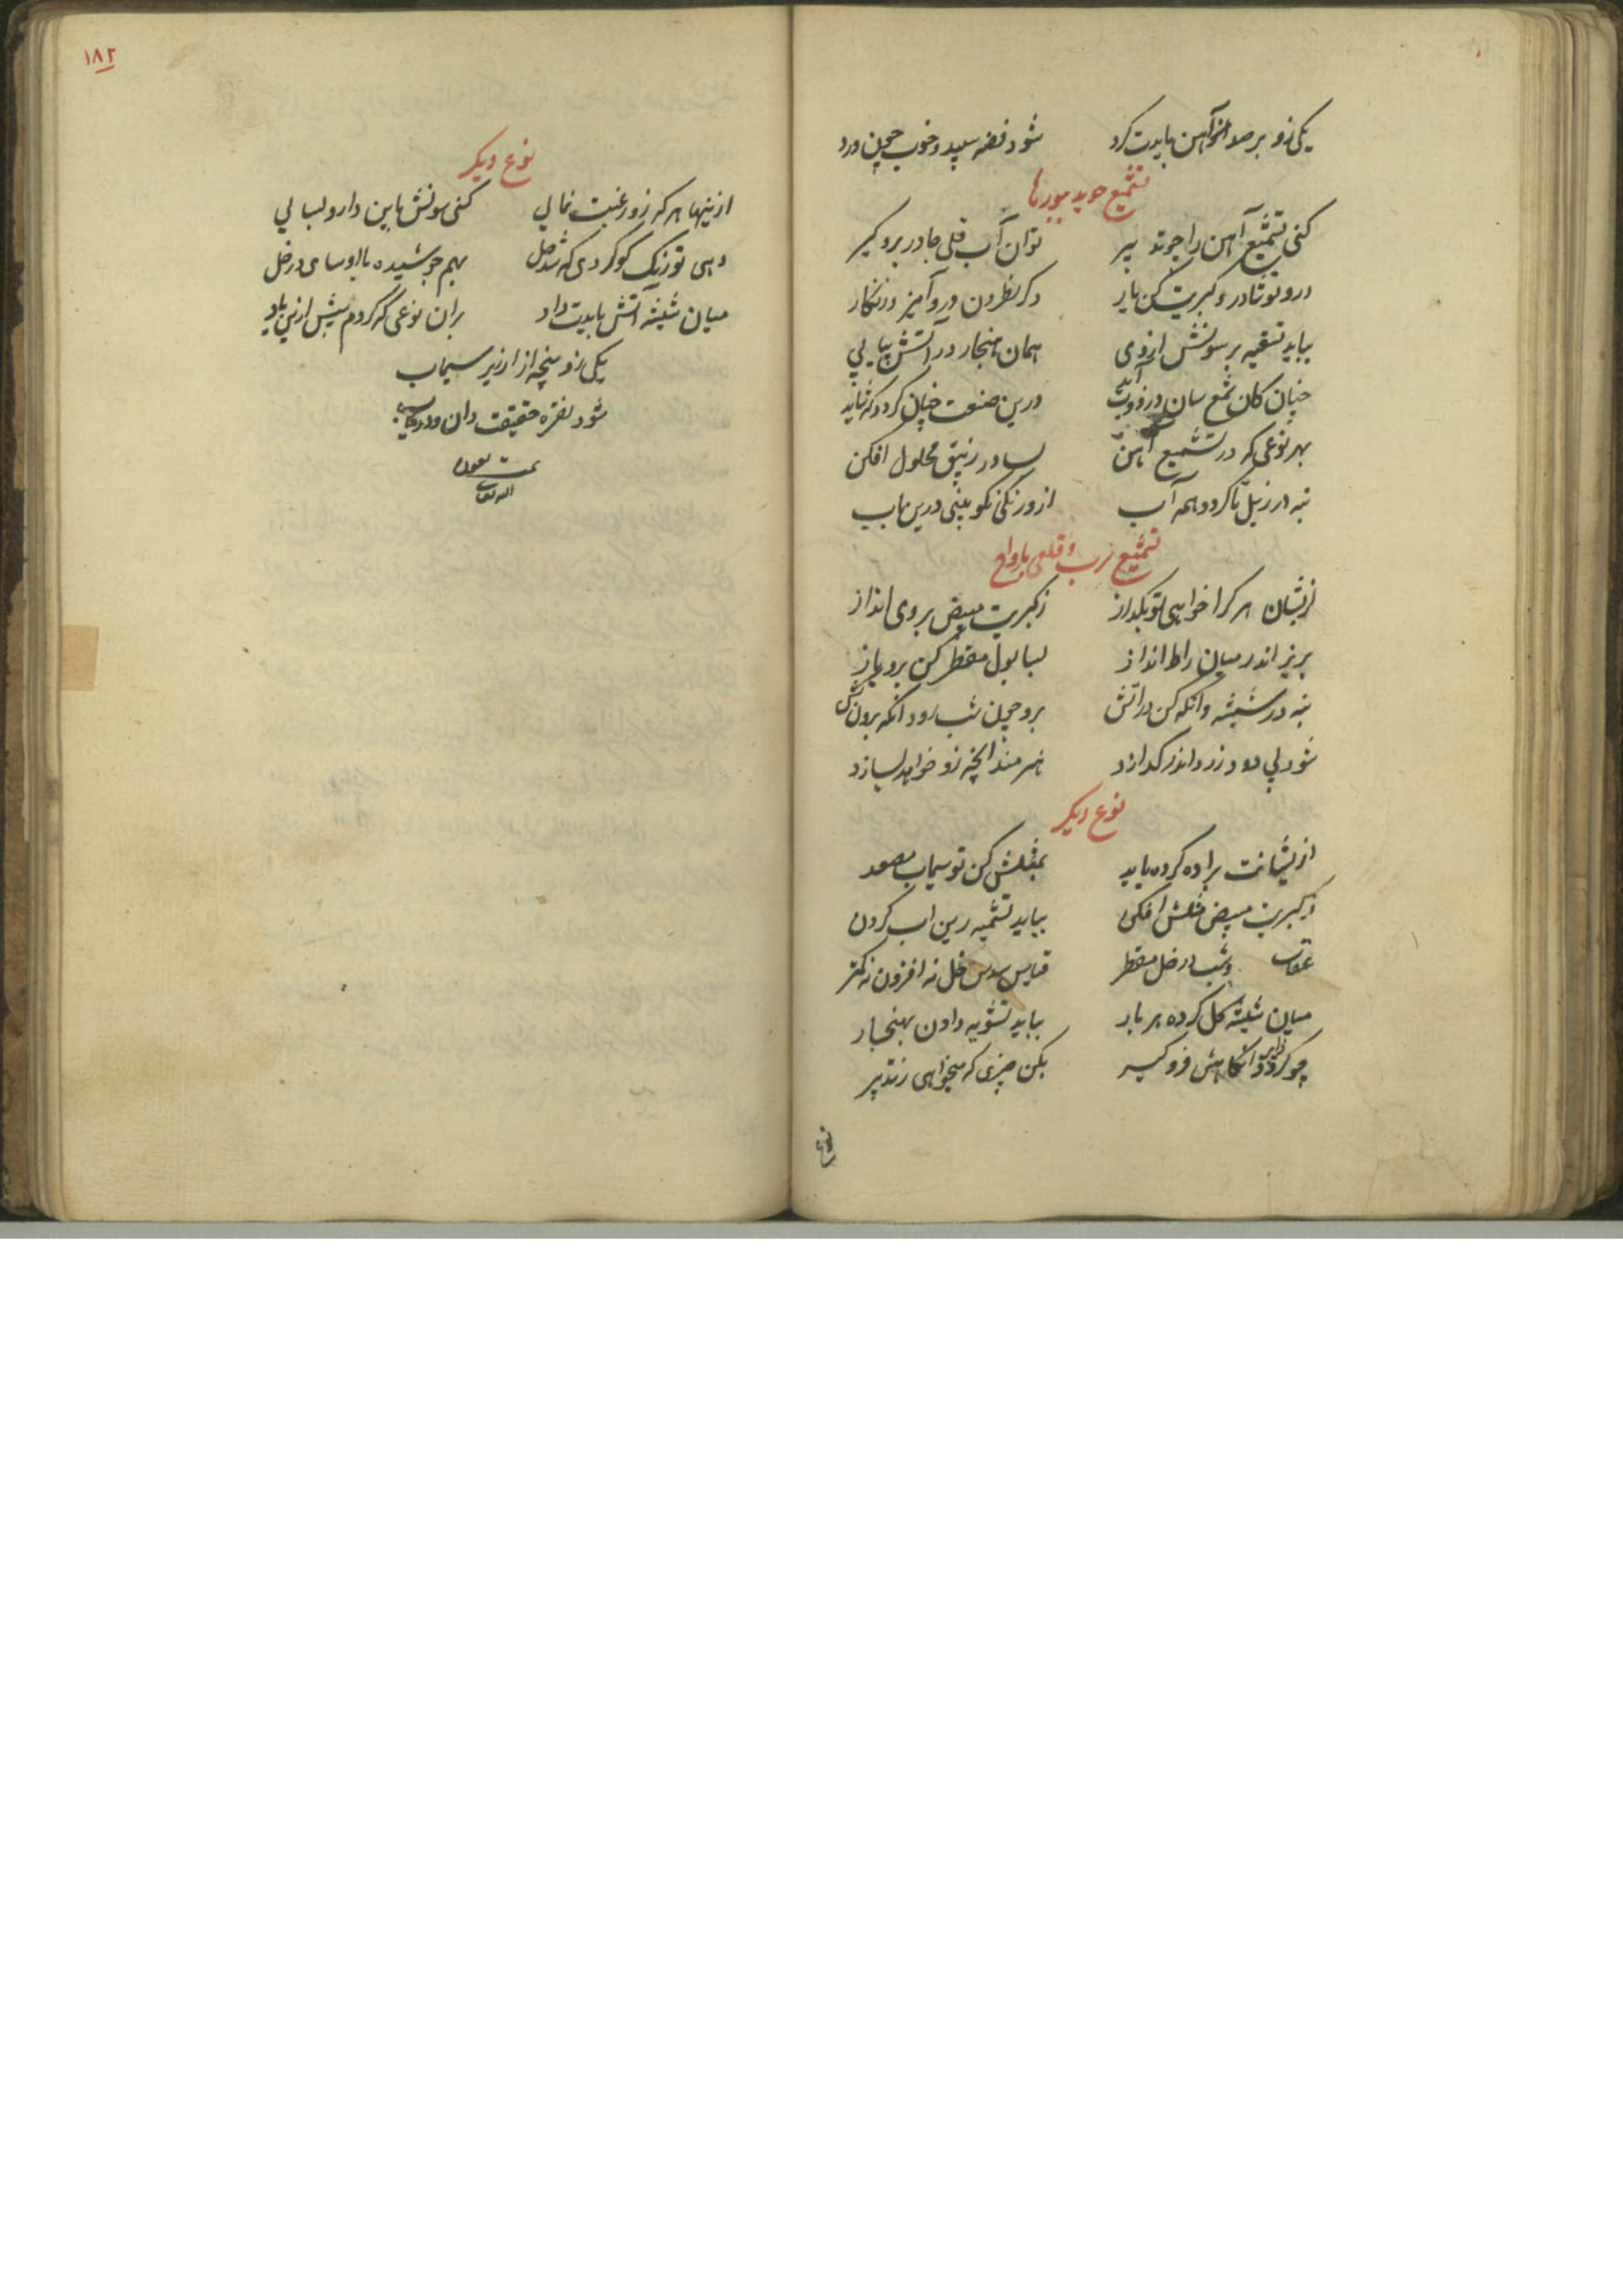 یکی زو بر صد آهن بایدت کرد شود فضه سپید و خوب چون ورد
تشمیع
کنی تشمیع آهن را چو تدبیر توان آب قلی جا در برو گیر
درو نوشادر و کبریت کن یار دگر نطرون درو آمیز و زنگار
بباید تسقیه بر سونش از وی همان هنجار در آتش پیاپی
چنان کان شمع سان در ذوب آید درین صنعت چنان گردد که شاید
بهر نوعی که در تشمیع آهن بسا در زیبق محلول افکن
بنه در زبل تا گردد همه آب ازو رنگی نکو بینی درین باب
تشمیع سرب و قلعی بارواح
ازیشان هر کرا خواهی تو بگداز ز کبریت مبیض بروی انداز
بریز اندر میان راط انداز بسا بول مقطر کن برو باز
بنه در شیشه وانگه کن در آتش برو چون شب رود آنگه برون کش
شود بی دود زرد اندر گدازد هنرمند آنچه زو خواهد بسازد
نوع دیگر
ازیشانت براده کرده باید بمثلش کن تو سیماب مصعد
ز کبریت مبیض مثلش افکن بباید تشمیه زین آب کردن
عقاب و شب در خل مقطر قیاس سدس خل نه افزون نه کمتر
میان شیشه گل کرده هر بار بباید تشویه دادن بهنجار
چو گردد ذایب آنگاهش فرو گیر بکن چیزی که میخواهی ز تدبیر
نوع
۱۸۲
نوع دیگر
ازینها هر که زو رغبت نمایی کنی سونش باین دارو بسایی
دهی تو زنگ گوگردی که شد حل بهم جوشیده با او سای در خل
میان شیشه آتش بایدت داد بران نوعی که کردم پیش ازین یاد
یکی زو پنجه از ارزیز سیماب
شود نقره حقیقت دان و دریاب
تمت بعون
الله تعالی